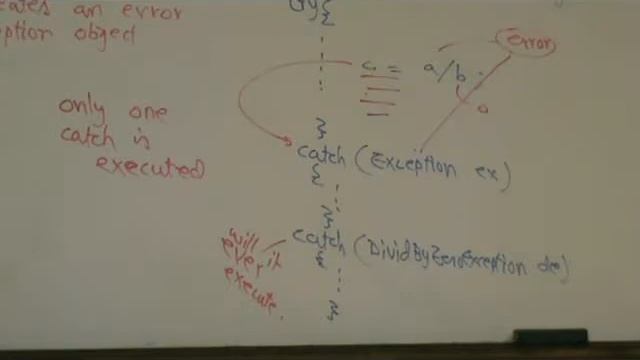 ates an error
ption object
try{
c = a/b
error
0
only one
catch is
executed
}
catch (Exception ex)
{
}
catch (DividByZeroException de)
{
}
will
ever it
execute.